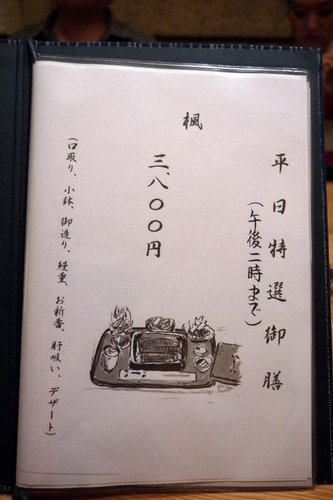 平日特選御膳
(午後二時まで)
楓
三、八〇〇円
(口取り、小鉢、御造り、鰻重、お新香、肝吸い、デザート)